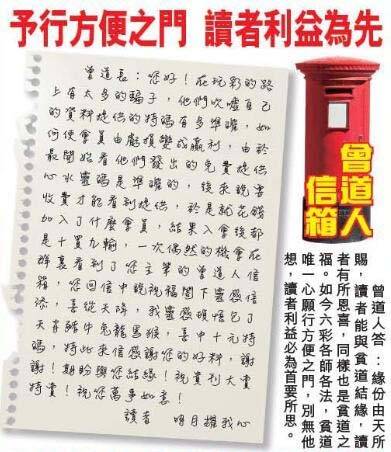 予行方便之門 讀者利益為先
曾道長:您好!在玩彩的路
上有太多的騙子,他們吹噓自己
的資料提供的特碼有多準確,如
何使會員由虧損變成贏利,由於
最開始看他們發出的免費提供
心水靈碼是準確的,後來說要
收費才能看到提供,於是就花錢
加入了什麼會員,結果入會後都
是十買九輸,一次偶然的機會在
群裏看到了您主筆的曾道人信
箱,您回信中說祝福閣下靈感倍
添,喜從天降,我靈感頓悟包了
天肖豬牛兔龍馬猴,喜中十元特
碼,特此來信感謝您的好料,謝
謝!期盼與您結緣!祝貴刊大賣
特賣!祝您萬事如意!
讀者 明月握我心
曾道人
信箱
曾道人答:緣份由天所
賜,讀者能與貧道結緣,讀
者有所恩喜,同樣也是貧道之
福。如今六彩各師各法,貧道
唯一心願行方便之門,別無他
想,讀者利益必為首要所思。